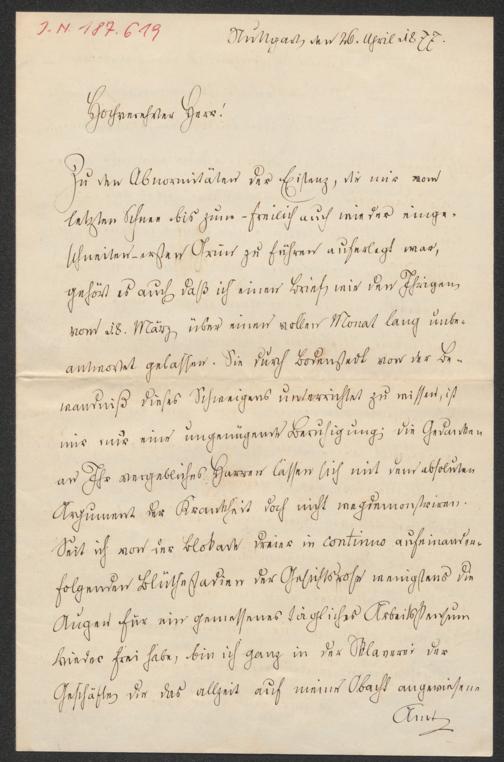 J. N. 187.619
Stuttgart, den 26. April 1877.
Hochverehrter Herr!
Zu den Abnormitäten der Existenz, die mir vom
letzten Schnee bis zum – freilich auch wieder einge-
schneiten – ersten Grün zu führen auferlegt war,
gehört es auch, daß ich einen Brief, wie den Ihrigen
vom 18. März, über einen vollen Monat lang unbe-
antwortet gelassen. Sie durch Bodenstedt von der Be-
wandniß dieses Schweigens unterrichtet zu wissen, ist
mir nur eine ungenügende Beruhigung; die Gedanken
an Ihr vergebliches Harren lassen sich mit dem absoluten
Argument der Krankheit doch nicht wegdemonstriren.
Seit ich von der Blokade dreier in continuo aufeinander-
folgenden Blüthestadien der Gesichtsrose wenigstens die
Augen für ein gemessenes tägliches Arbeitspensum
wieder frei habe, bin ich ganz in der Sklaverei der
Geschäfte, die das allzeit auf meine Obacht angewiesene
Amt